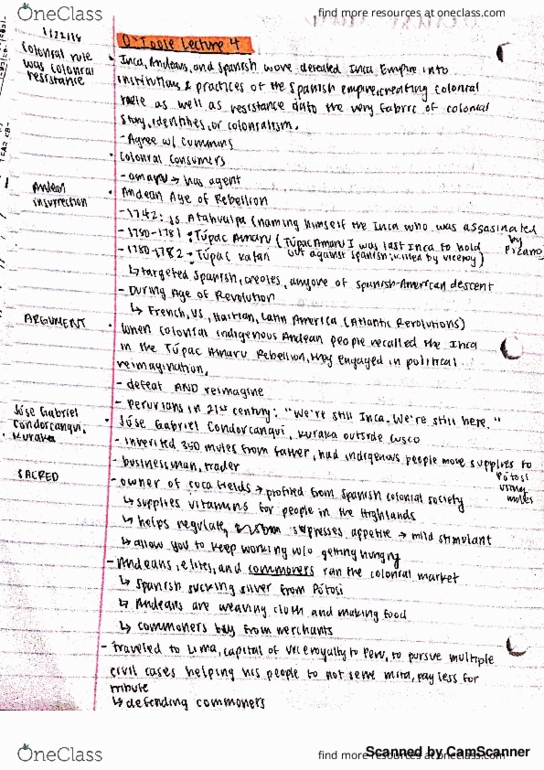 OneClass
find more resources at oneclass.com
1/22/18
O'Toole Lecture 4
Colonial rule
was colonial
resistance
• Inca, Andeans, and Spanish wove defeated Inca Empire into
institutions & practices of the Spanish empire, creating colonial
rule as well as resistance into the very fabric of colonial
story, identities, or colonialism.
- Agree w/ Cummins
• Colonial Consumers
- amaru → has agent
Andean
insurrection
• Andean Age of Rebellion
- 1742: Js Atahualpa (naming himself the Inca who was assasinated by Pizano)
- 1780-1781: Túpac Amaru (Túpac Amaru I was last Inca to hold
out against Spanish; killed by viceroy)
- 1780-1782: Túpac Katari
↳ targeted Spanish, creoles, anyone of Spanish-American descent
- During Age of Revolution
↳ French, US, Haitian, Latin America (Atlantic Revolutions)
ARGUMENT
• When colonial indigenous Andean people recalled the Inca
in the Túpac Amaru Rebellion, they engaged in political
reimagination.
- defeat AND reimagine
- Peruvians in 21st century: "We're still Inca. We're still here."
Jóse Gabriel
Condorcanqui,
Kuraka
• Jóse Gabriel Condorcanqui, kuraka outside Cusco
- inherited 350 mules from father, had indigenous people move supplies to Pótosi using mules
- businessman, trader
SACRED
- owner of coca fields → profited from Spanish colonial society
↳ supplies vitamins for people in the Highlands
↳ helps regulate, supresses appetite → mild stimulant
↳ allow you to keep working w/o getting hungry
- Andeans, elites, and commoners ran the colonial market
↳ Spanish sucking silver from Pótosi
↳ Andeans are weaving cloth and making food
↳ commoners buy from merchants
- traveled to Lima, capital of Viceroyalty to Peru, to pursue multiple
civil cases helping his people to not serve mita, pay less for
tribute
↳ defending commoners
OneClass
find more resources at oneclass.com
Scanned by CamScanner